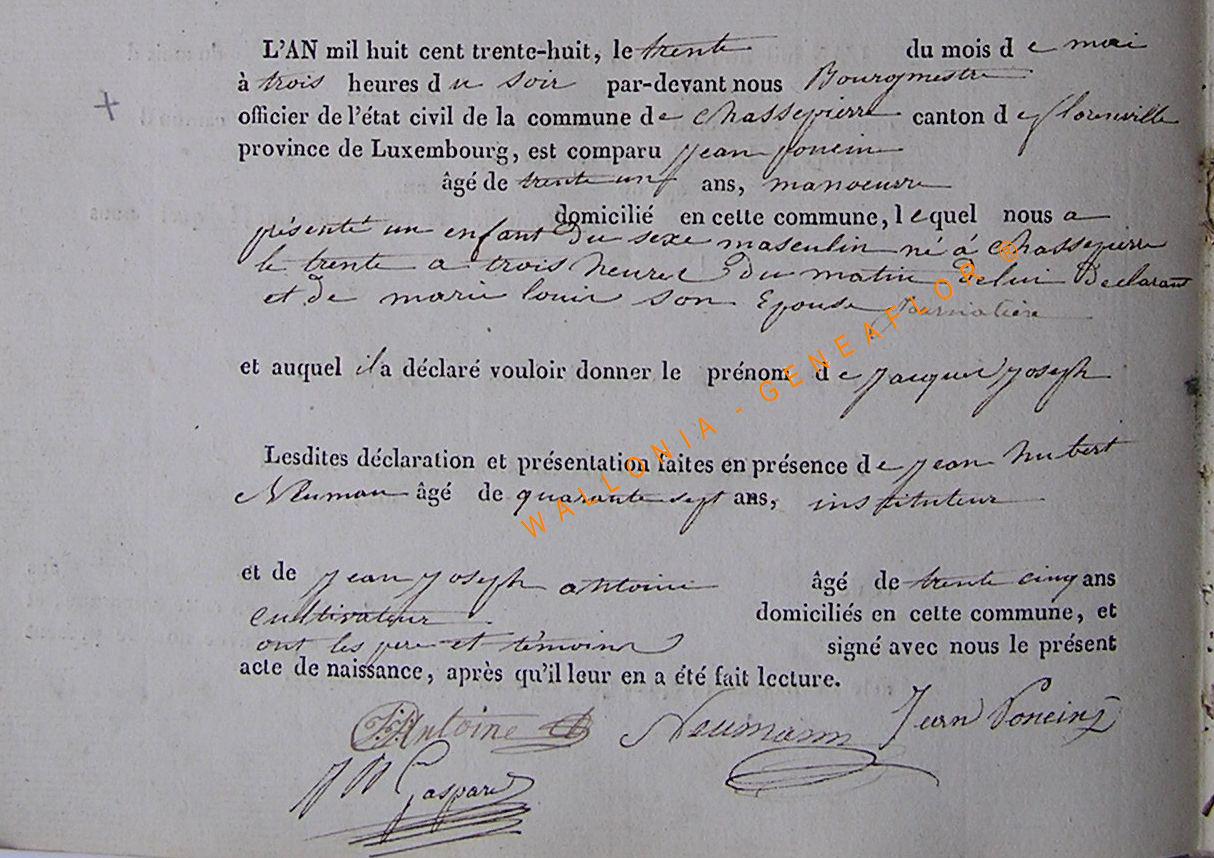 L'AN mil huit cent trente-huit, le trente du mois d e mai
à trois heures d u soir par-devant nous Bourgmestre
officier de l'état civil de la commune de chassepierre canton d e florenville
province de Luxembourg, est comparu jean poncin
âgé de trente un ans, manoeuvre
domicilié en cette commune, lequel nous a
présenté un enfant du sexe masculin né à chassepierre
le trente a trois heures du matin de lui Déclarant
et de marie louis son Epouse
et auquel il a déclaré vouloir donner le prénom d e jacques joseph
Lesdites déclaration et présentation faites en présence d e jean hubert
Neuman âgé de quarante sept ans, instituteur
et de jean joseph antoine âgé de trente cinq ans
cultivateur domiciliés en cette commune, et
ont les pere et témoins signé avec nous le présent
acte de naissance, après qu'il leur en a été fait lecture.
JJAntoine Neumann Jean Poncin
Gaspard
WALLONIA - GENEAFLOR ©